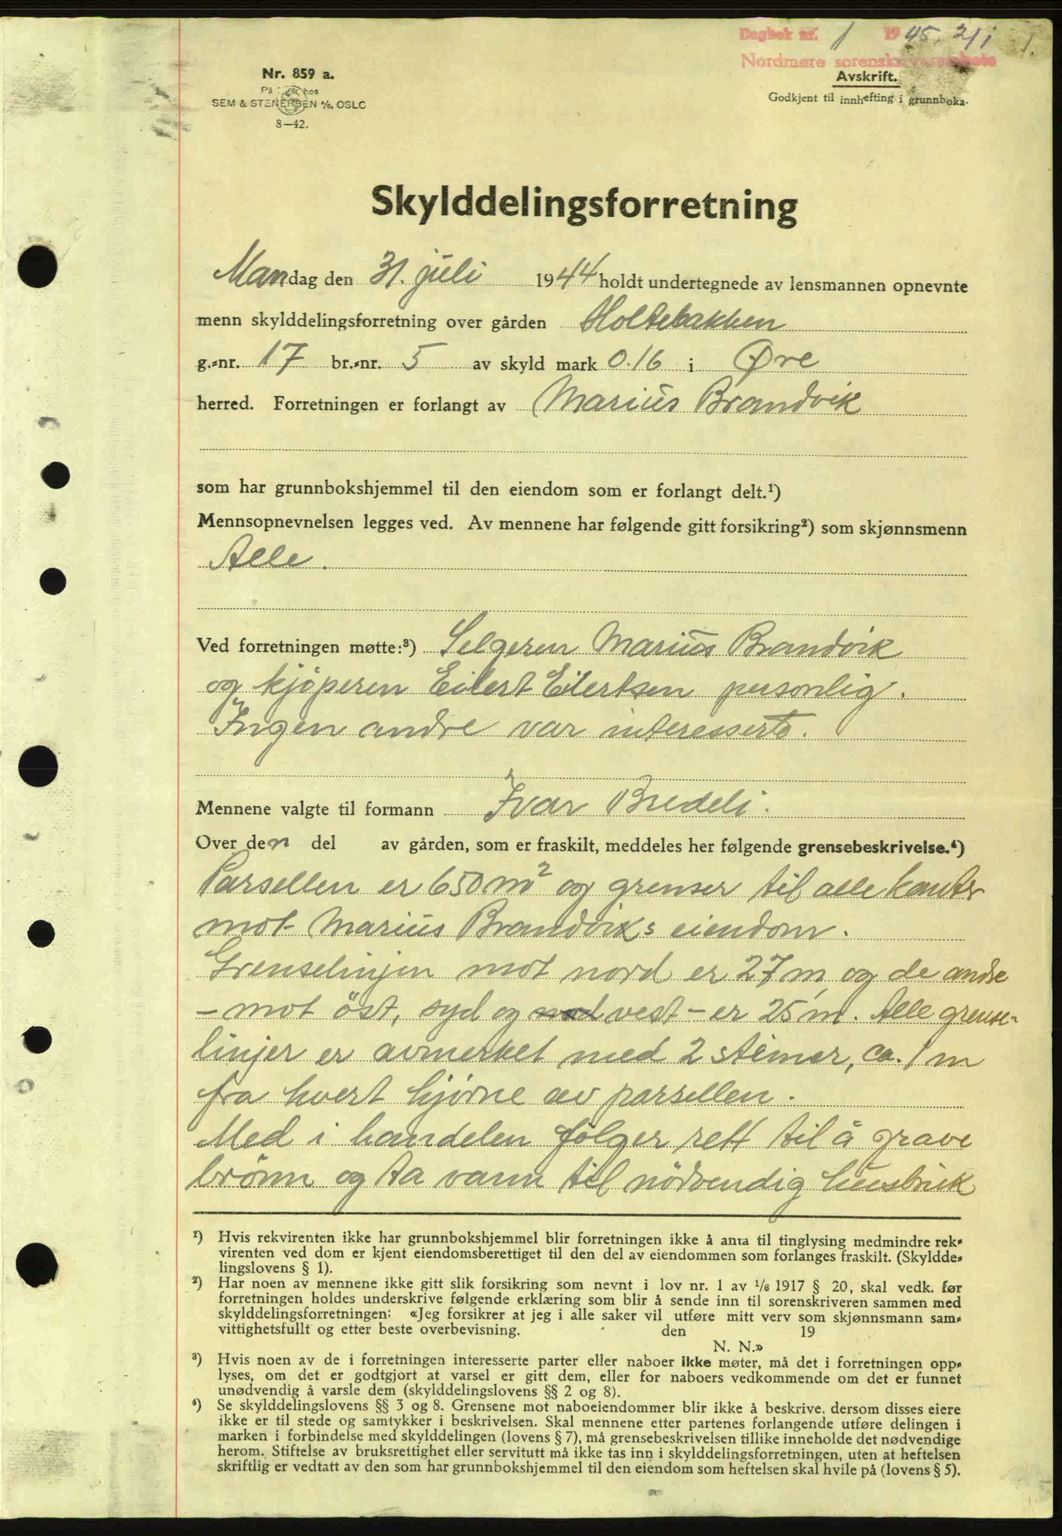 Dagbok nr. 1 1945, 2/1 1.
Nordmøre sorenskriverembete
Nr. 859 a.
På lager hos
SEM & STENERSEN A/S, OSLO
8—42.
Avskrift.
Godkjent til innhefting i grunnboka.
Skylddelingsforretning
Mandag den 31. juli 1944 holdt undertegnede av lensmannen opnevnte
menn skylddelingsforretning over gården Holtebakken
g.-nr. 17 br.-nr. 5 av skyld mark 0.16 i Øre
herred. Forretningen er forlangt av Marius Brandvik
som har grunnbokshjemmel til den eiendom som er forlangt delt.¹)
Mennsopnevnelsen legges ved. Av mennene har følgende gitt forsikring²) som skjønnsmenn
Alle.
Ved forretningen møtte:³) Selgeren Marius Brandvik
og kjøperen Eilert Eilertsen personlig.
Ingen andre var interesserte.
Mennene valgte til formann Ivar Bredeli.
Over den del av gården, som er fraskilt, meddeles her følgende grensebeskrivelse.⁴)
Parsellen er 650 m² og grenser til alle kanter
mot Marius Brandviks eiendom.
Grenselinjen mot nord er 27 m, og de andre
– mot øst, syd og vest – er 25 m. Alle grense-
linjer er avmerket med 2 steiner, ca. 1 m
fra hvert hjørne av parsellen.
Med i handelen følger rett til å grave
brønn og ta vann til nødvendig husbruk
¹) Hvis rekvirenten ikke har grunnbokshjemmel blir forretningen ikke å anta til tinglysing medmindre rek-
virenten ved dom er kjent eiendomsberettiget til den del av eiendommen som forlanges fraskilt. (Skyldde-
lingslovens § 1).
²) Har noen av mennene ikke gitt slik forsikring som nevnt i lov nr. 1 av 1/6 1917 § 20, skal vedk. før
forretningen holdes underskrive følgende erklæring som blir å sende inn til sorenskriveren sammen med
skylddelingsforretningen: «Jeg forsikrer at jeg i alle saker vil utføre mitt verv som skjønnsmann sam-
vittighetsfullt og etter beste overbevisning. den 19
N. N.»
³) Hvis noen av de i forretningen interesserte parter eller naboer ikke møter, må det i forretningen opp-
lyses, om det er godtgjort at varsel er gitt dem, eller for naboers vedkommende om det er funnet
unødvendig å varsle dem (skylddelingslovens §§ 2 og 8).
⁴) Se skylddelingslovens §§ 3 og 8. Grensene mot naboeiendommer blir ikke å beskrive, dersom disses eiere
ikke er til stede og samtykker i beskrivelsen. Skal mennene etter partenes forlangende utføre delingen i
marken i forbindelse med skylddelingen (lovens § 7), må grensebeskrivelsen tillike inneholde det nødvendige
herom. Stiftelse av bruksrettighet eller servitutt må ikke tas inn i skylddelingsforretningen, uten at heftelsen
skriftlig er vedtatt av den som har grunnbokshjemmel til den eiendom som heftelsen skal hvile på (lovens § 5).